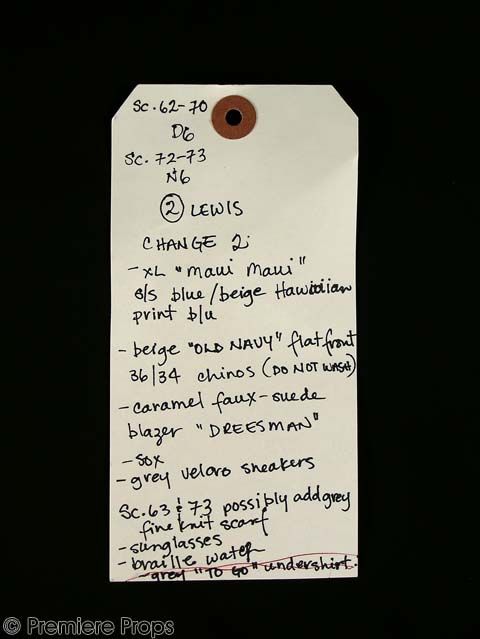 SC. 62-70
D6
SC. 72-73
N6
② LEWIS
CHANGE 2:
- XL "Maui Maui"
s/s blue/beige Hawaiian
print b/u
- beige "OLD NAVY" flatfront
36/34 chinos (DO NOT WASH)
- caramel faux-suede
blazer "DREESMAN"
- sox
- grey velcro sneakers
SC. 63 & 73 possibly add grey
fine knit scarf
- sunglasses
- braille watch
- grey "TO GO" undershirt.
© Premiere Props